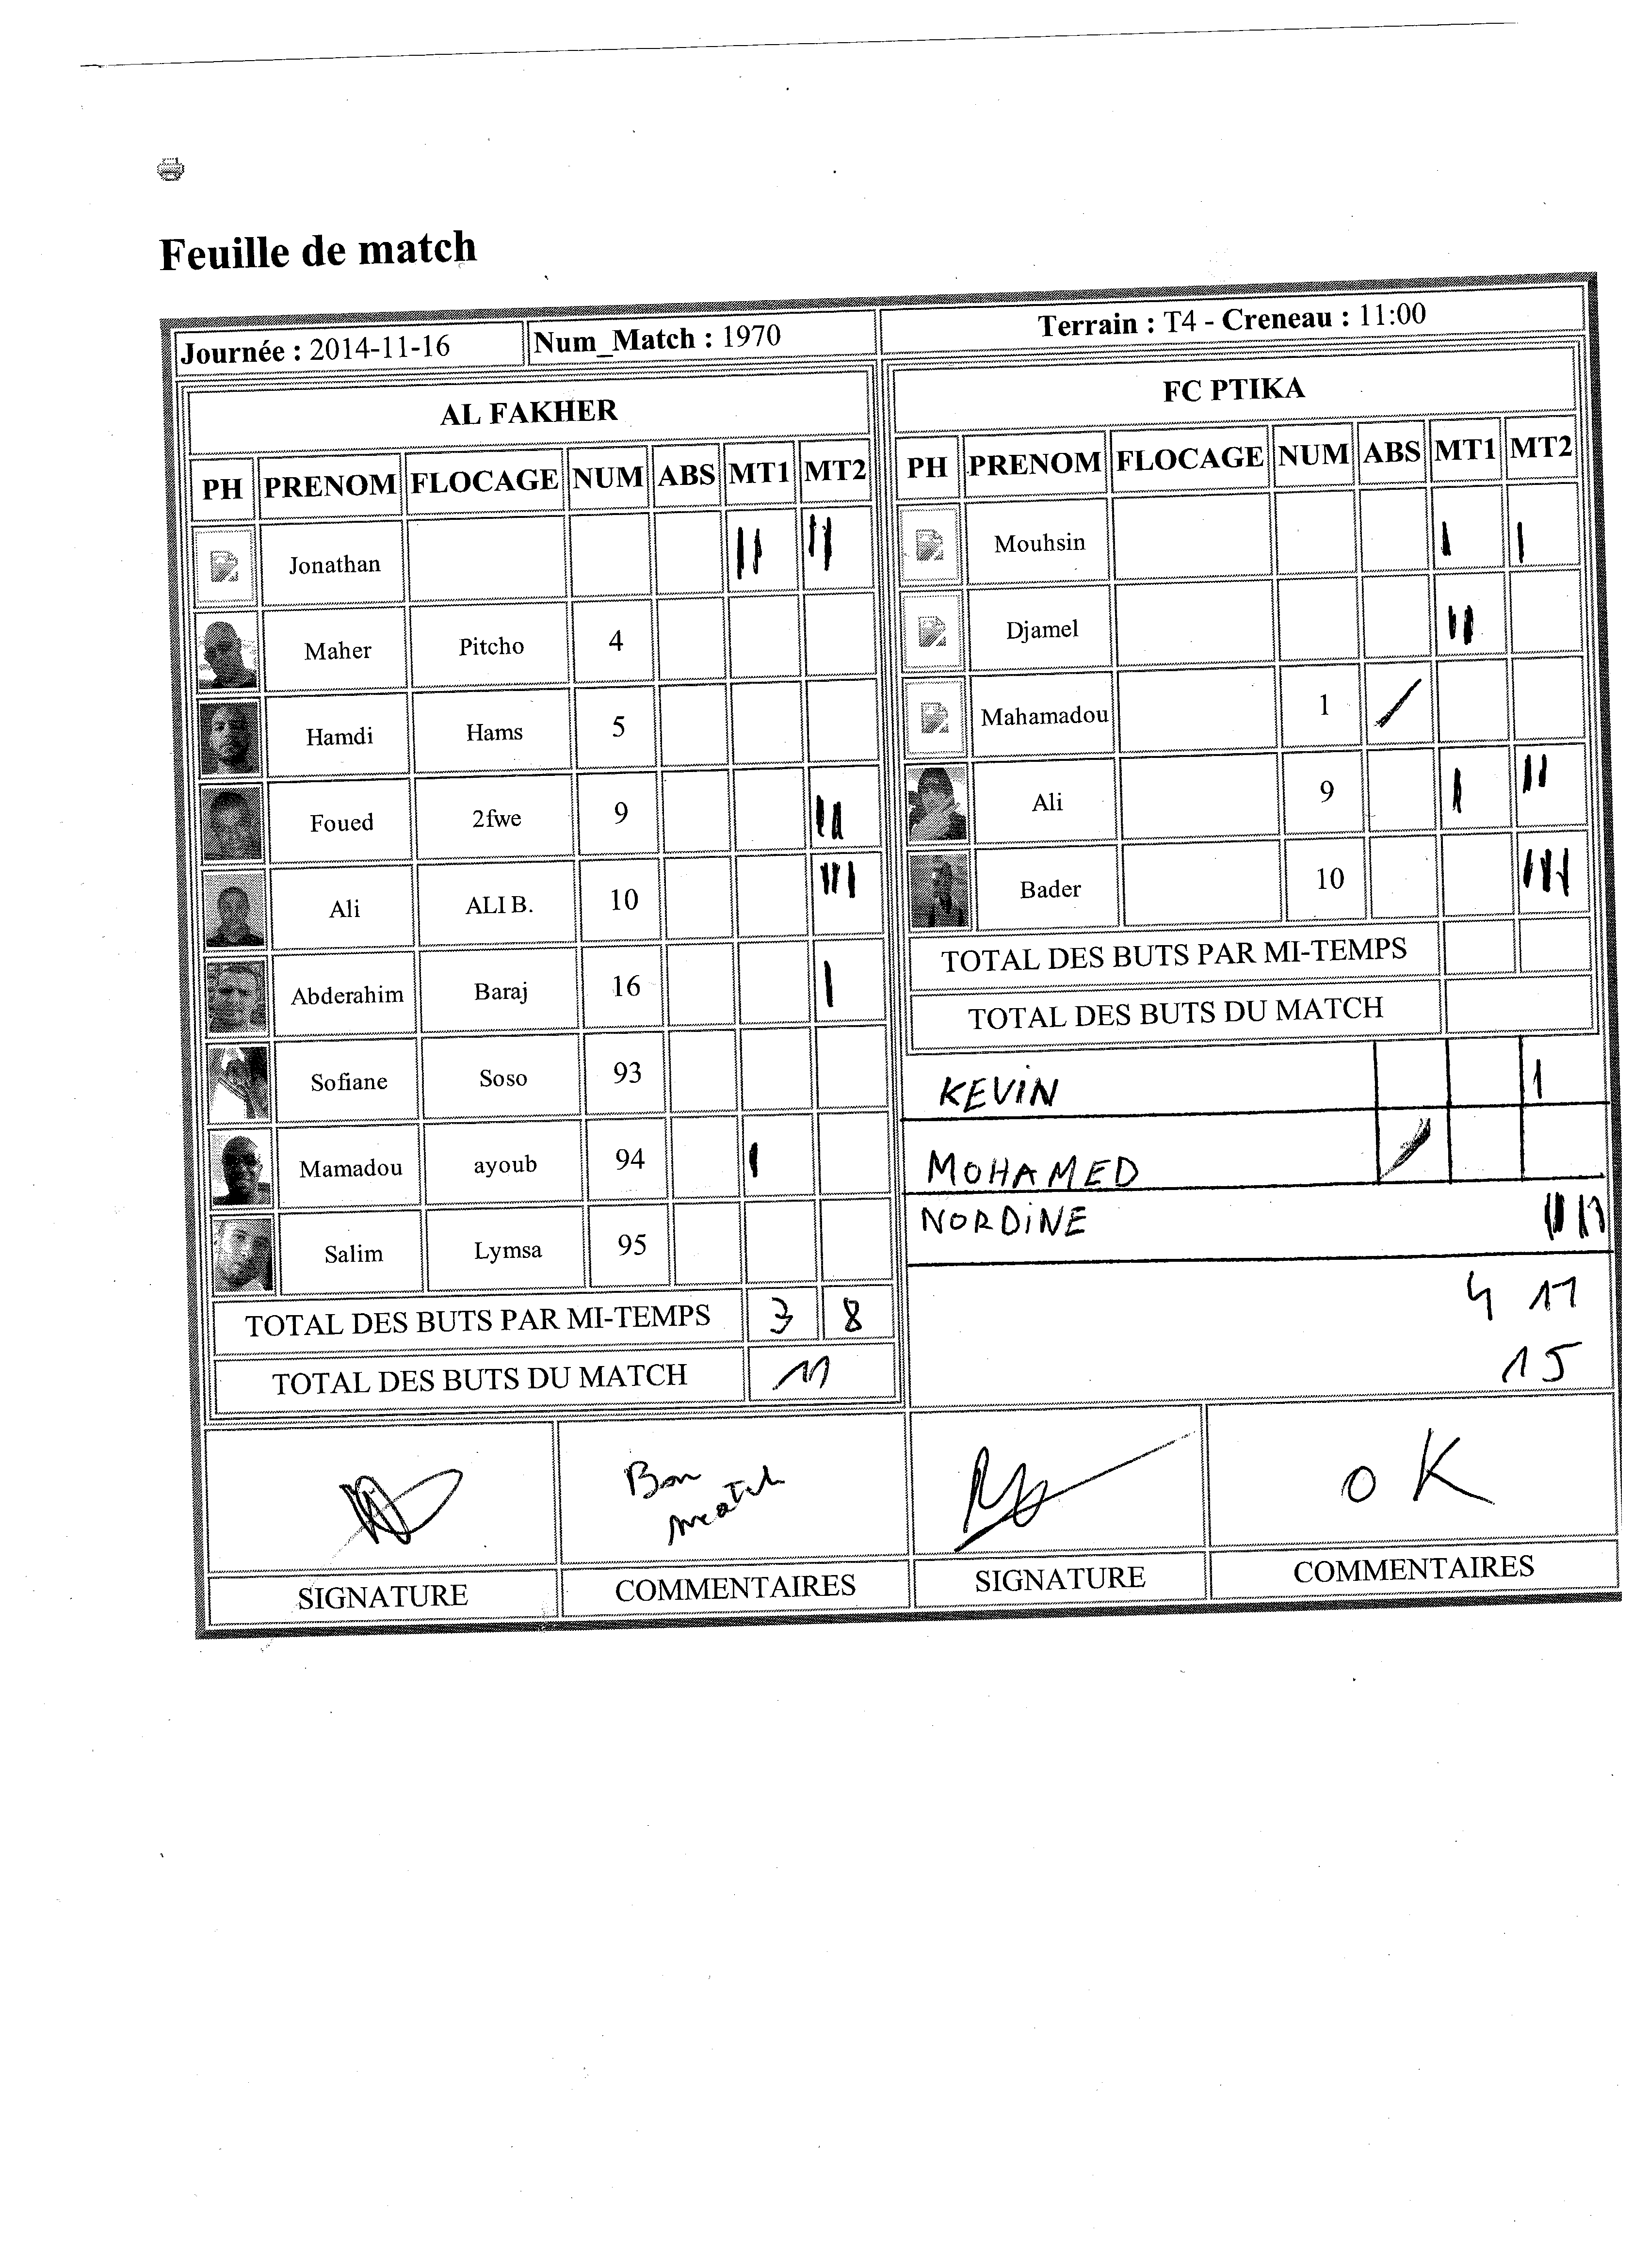 Feuille de match
Journée : 2014-11-16 Num_Match : 1970 Terrain : T4 - Creneau : 11:00
AL FAKHER
PH PRENOM FLOCAGE NUM ABS MT1 MT2
Jonathan || ||
Maher Pitcho 4
Hamdi Hams 5
Foued 2fwe 9 ||
Ali ALI B. 10 |||
Abderahim Baraj 16 |
Sofiane Soso 93
Mamadou ayoub 94 |
Salim Lymsa 95
TOTAL DES BUTS PAR MI-TEMPS 3 8
TOTAL DES BUTS DU MATCH 11
FC PTIKA
PH PRENOM FLOCAGE NUM ABS MT1 MT2
Mouhsin | |
Djamel ||
Mahamadou 1 /
Ali 9 | ||
Bader 10 |||
TOTAL DES BUTS PAR MI-TEMPS
TOTAL DES BUTS DU MATCH
KEVIN |
MOHAMED /
NORDINE ||||
4 11
15
Bon
match
OK
SIGNATURE COMMENTAIRES SIGNATURE COMMENTAIRES